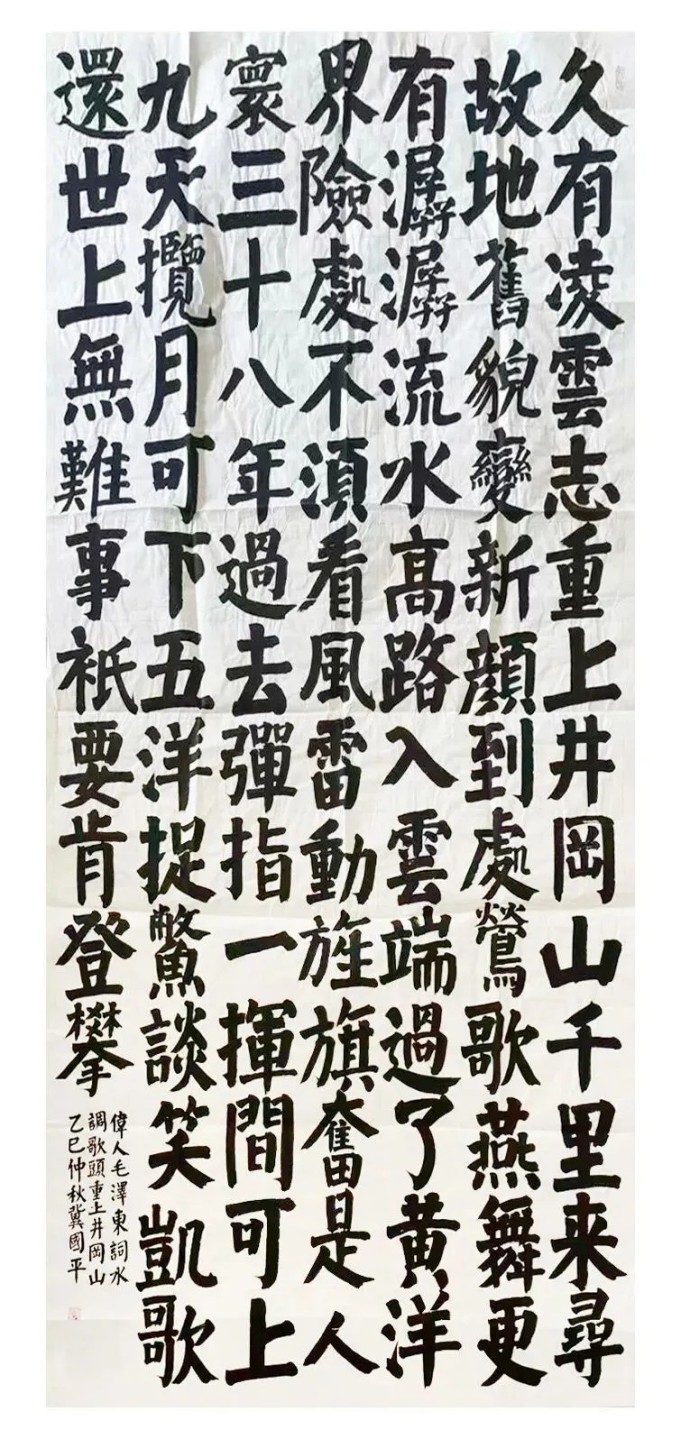 久有凌雲志重上井岡山千里来尋
故地舊貌變新顔到處鶯歌燕舞更
有潺潺流水高路入雲端過了黄洋
界險處不湏看風雷動旌旗奮是人
寰三十八年過去彈指一揮間可上
九天攬月可下五洋捉鱉談笑凱歌
還世上無難事祇要肯登攀
偉人毛澤東詞水
調歌頭重上井岡山
乙巳仲秋冀國平